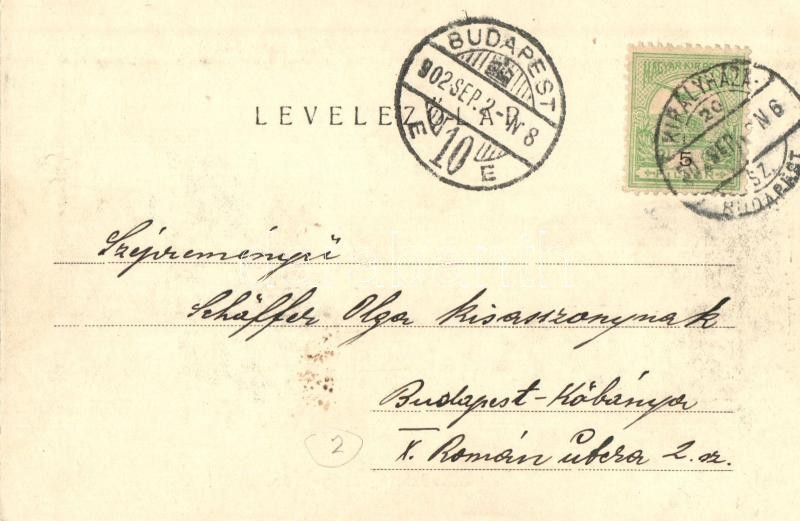 BUDAPEST
902 SEP. 2-N 8
10
E E
LEVELEZŐLAP
MAGYAR KIR. POSTA
5
KIRÁLYHÁZA-
29
N 6
SZ.
BUDAPEST
Szépreményü
Schäffer Olga kisasszonynak
Budapest-Kőbánya
X. Román utcza 2. sz.
2